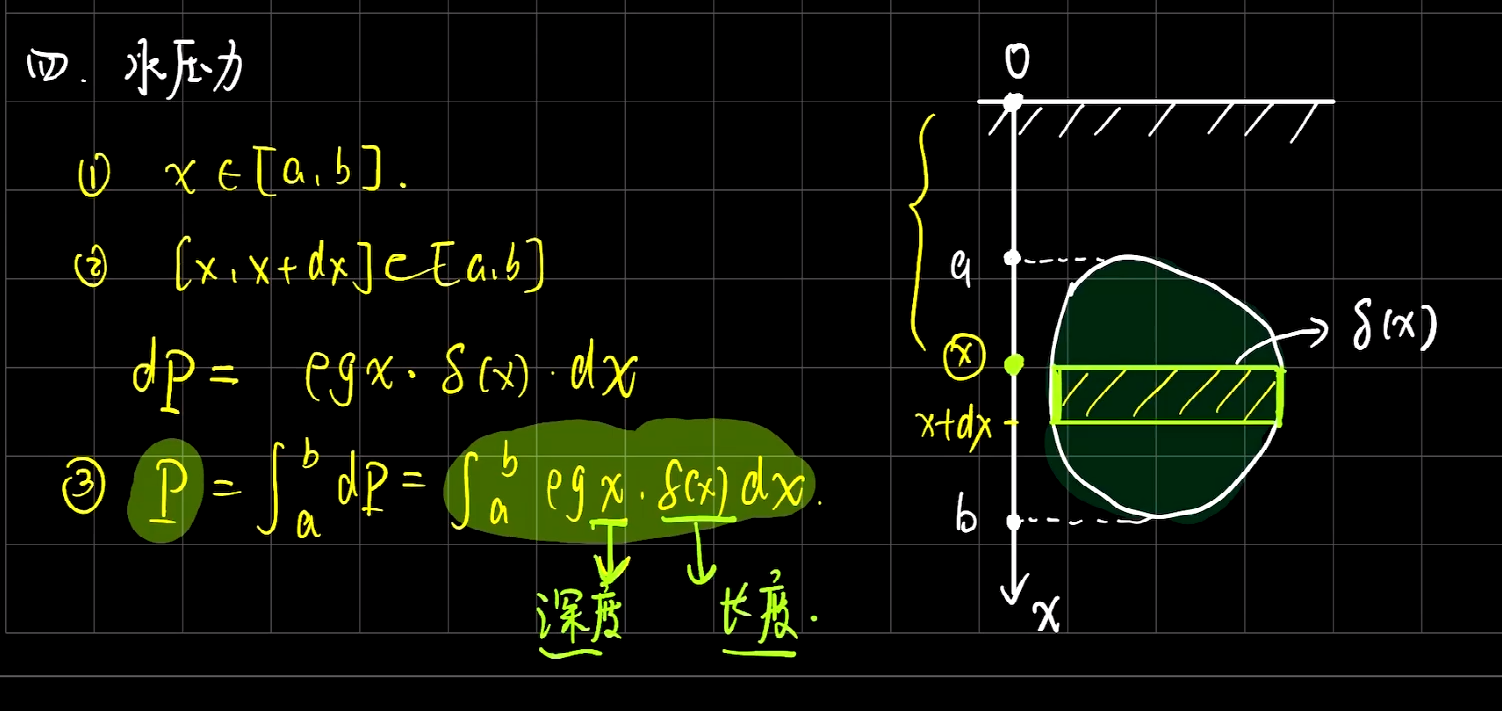 四. 水压力
① x ∈ [a, b].
② [x, x+dx] ∈ [a, b]
dP = ρgx · δ(x) · dx
③ P = ∫_a^b dP = ∫_a^b ρgx · δ(x) dx.
深度 长度.
O
a
x
x+dx
b
x
δ(x)